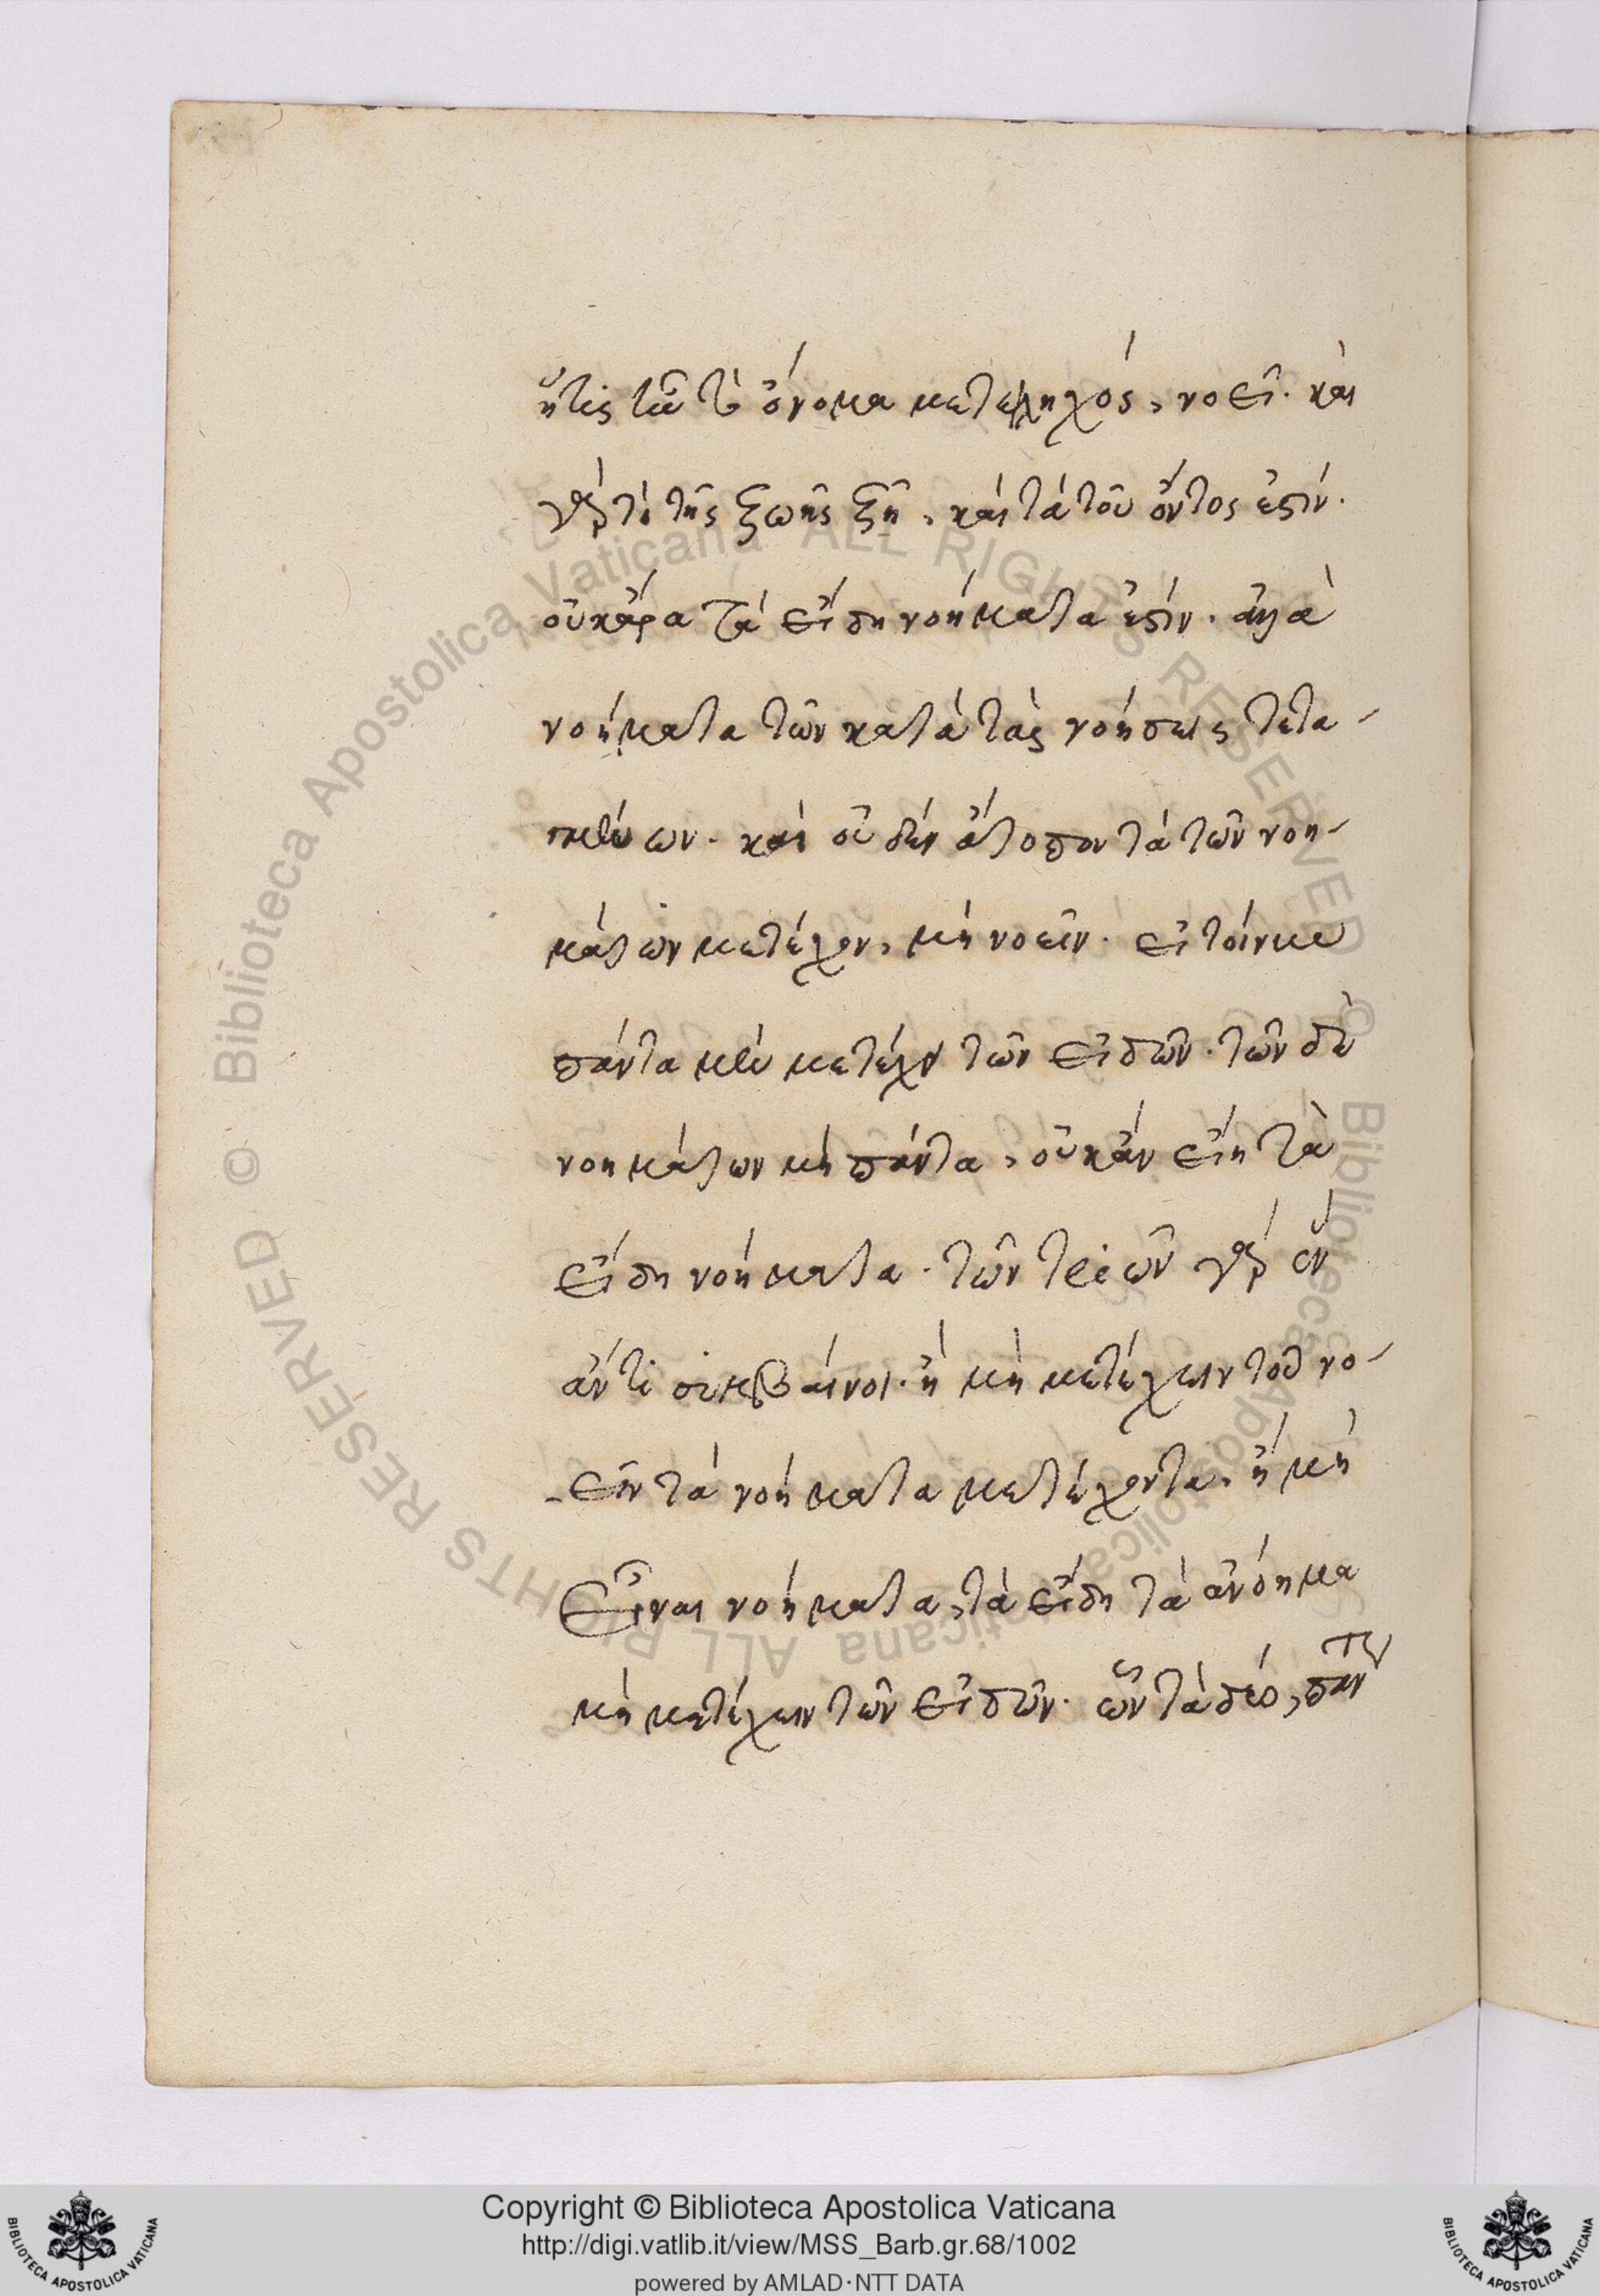 ἥτις τῶ τὸ ὄνομα μετειληχός, νοεῖ. καὶ
γὰρ τὸ τῆς ζωῆς ζῆ, καὶ τὰ τοῦ ὄντος ἐστίν.
οὐκ ἄρα τὰ εἴδη νοήματα ἐστίν. ἀλλὰ
νοήματα τῶν κατὰ τὰς νοήσεις τετα-
μένων. καὶ οὐδὲν ἄτοπον τὰ τῶν νοη-
μάτων μετέχον, μὴ νοεῖν. εἰ τοίνυν
πάντα μὲν μετέχει τῶν εἰδῶν. τῶν δὲ
νοημάτων μὴ πάντα, οὐκ ἂν εἴη τὰ
εἴδη νοήματα. τῶν τριῶν γὰρ ἓν
ἄν τι συμβαίνοι. ἢ μὴ μετέχειν τοῦ νο-
-εῖν τὰ νοήματα μετέχοντα, ἢ μὴ
εἶναι νοήματα, τὰ εἴδη τὰ ἀνόημα
μὴ μετέχειν τῶν εἰδῶν. ὧν τὰ δύο,
Copyright © Biblioteca Apostolica Vaticana
http://digi.vatlib.it/view/MSS_Barb.gr.68/1002
powered by AMLAD·NTT DATA
BIBLIOTECA APOSTOLICA VATICANA
BIBLIOTECA APOSTOLICA VATICANA
© Biblioteca Apostolica Vaticana ALL RIGHTS RESERVED
© Biblioteca Apostolica Vaticana ALL RIGHTS RESERVED